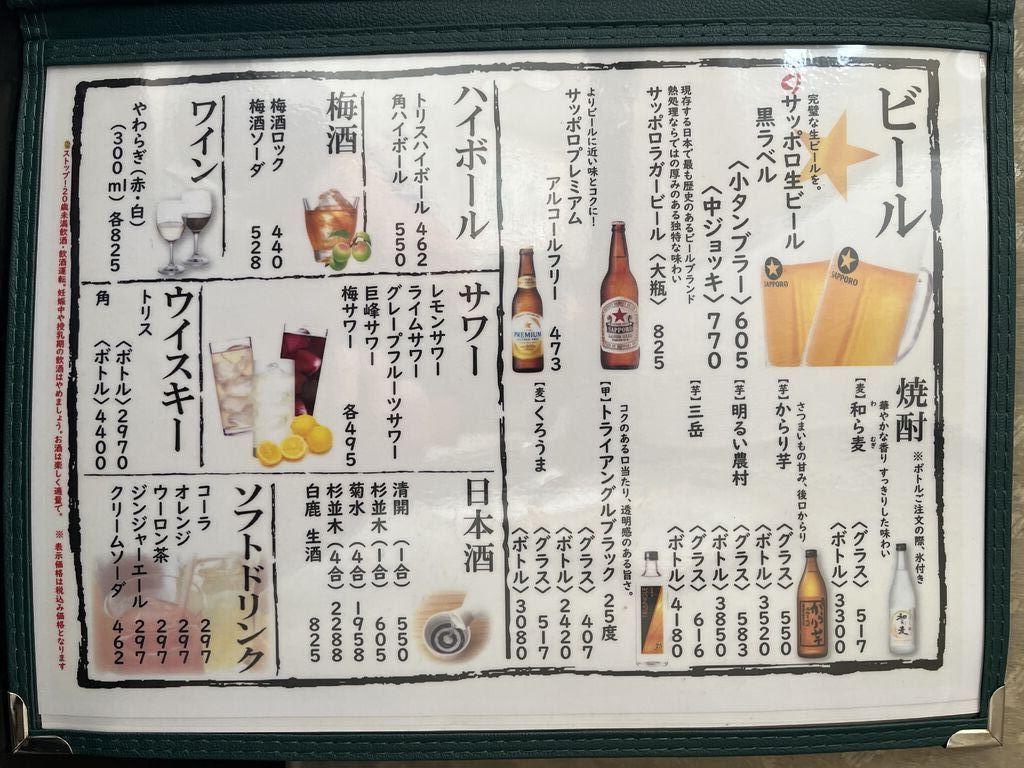 ビール
完璧な生ビールを。
サッポロ生ビール
黒ラベル
〈小タンブラー〉605
〈中ジョッキ〉770
SAPPORO
SAPPORO
現存する日本で最も歴史のあるビールブランド
熱処理ならではの厚みのある独特な味わい
サッポロラガービール〈大瓶〉 825
SAPPORO
よりビールに近い味とコクに!
サッポロプレミアム
アルコールフリー 473
PREMIUM
焼酎
※ボトルご注文の際、氷付き
華やかな香り すっきりした味わい
【麦】和ら麦 〈グラス〉517
わ むぎ
〈ボトル〉3300
和ら麦
さつまいもの甘み、後口からり
【芋】からり芋 〈グラス〉550
〈ボトル〉3520
からり芋
【芋】明るい農村 〈グラス〉583
〈ボトル〉3850
【芋】三岳 〈グラス〉616
〈ボトル〉4180
コクのある口当たり、透明感のある旨さ。
【甲】トライアングルブラック 25度
〈グラス〉407
〈ボトル〉2420
【麦】くろうま 〈グラス〉517
〈ボトル〉3080
ハイボール
トリスハイボール 462
角ハイボール 550
梅酒
梅酒ロック 440
梅酒ソーダ 528
ワイン
やわらぎ(赤・白)
(300ml)各825
サワー
レモンサワー
ライムサワー
グレープフルーツサワー
巨峰サワー
梅サワー 各495
ウイスキー
トリス 〈ボトル〉2970
角 〈ボトル〉4400
日本酒
清開 (1合) 550
杉並木(1合) 605
菊水 (4合) 1958
杉並木(4合) 2288
白鹿 生酒 825
ソフトドリンク
コーラ 297
オレンジ 297
ウーロン茶 297
ジンジャーエール 297
クリームソーダ 462
ストップ!20歳未満飲酒・飲酒運転。妊娠中や授乳期の飲酒はやめましょう。お酒は楽しく適量で。 ※ 表示価格は税込み価格となります